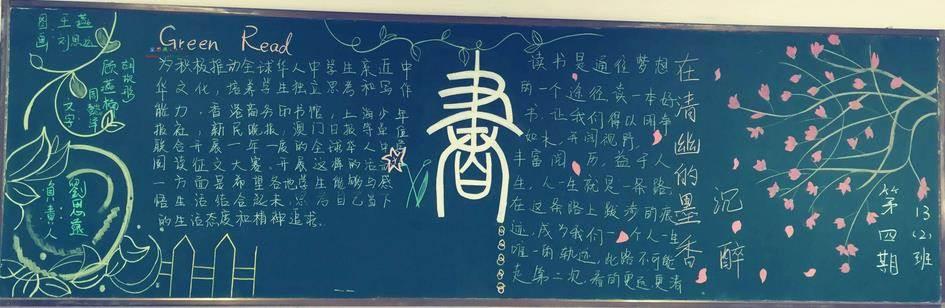 图 王燕
画 刘思延
文字
劉思延
負責人
Green Read
为积极推动全球华人中学生亲近中
华文化，培养学生独立思考和写作
能力，香港商务印书馆，上海少年
报社，新民晚报，澳门日报等单位
联合开展一年一度的全球华人中学
阅读征文大赛，开展这样的活动
一方面是希望各地学生能够与感
悟生活结合起来，
的生活态度和精神追求。
書
读书是通往梦想
的一个途径，读一本好
书，让我们得以明净
如水，开阔视野，
丰富阅历，益于人
生，人一生就是一条路，
在这条路上跋涉的痕
迹，成为我们一个人一生
唯一的轨迹，此路不可能
走第二次，看的更远更清
在清幽的墨香
沉醉
第四期
13(2)班